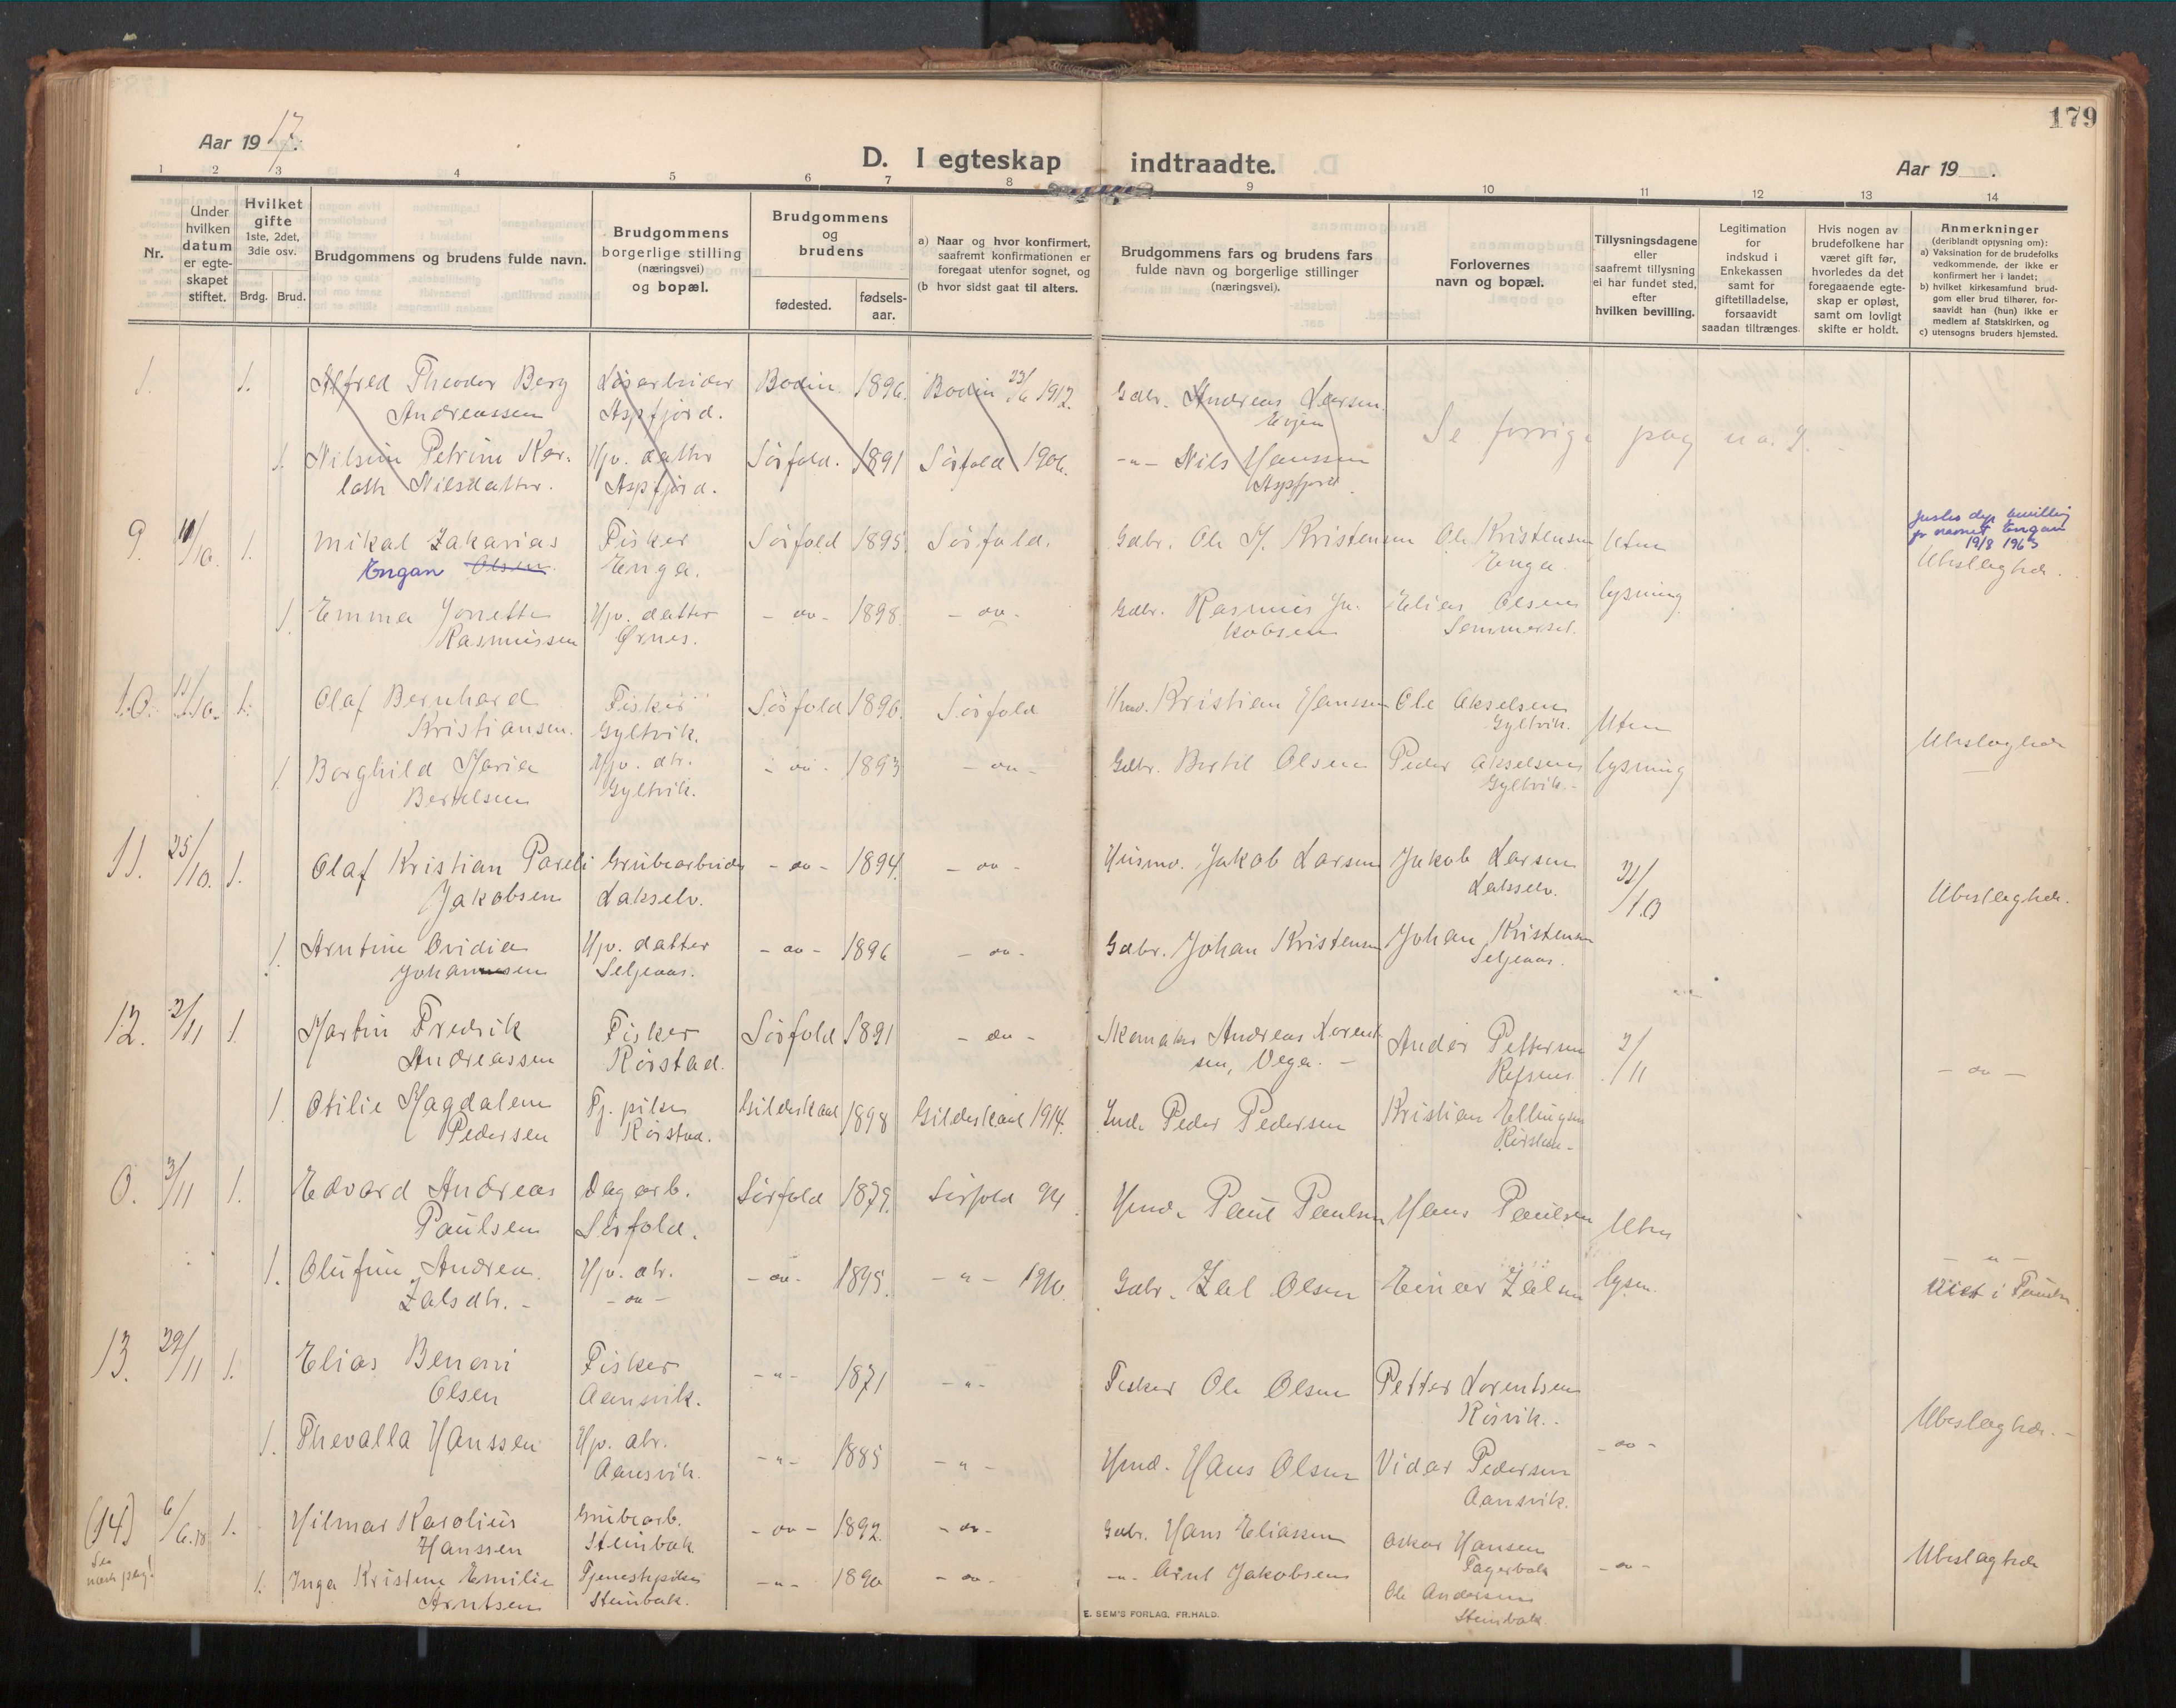 179
Aar 1917.
D. I egteskap indtraadte.
Aar 19 .
1 2 3 4 5 6 7 8 9 10 11 12 13 14
Nr.
Under
hvilken
datum
er egte-
skapet
stiftet.
Hvilket
gifte
1ste, 2det,
3die osv.
Brdg. Brud.
Brudgommens og brudens fulde navn.
Brudgommens
borgerlige stilling
(næringsvei)
og bopæl.
Brudgommens
og
brudens
fødested.
fødsels-
aar.
a) Naar og hvor konfirmert,
saafremt konfirmationen er
foregaat utenfor sognet, og
(b hvor sidst gaat til alters.
Brudgommens fars og brudens fars
fulde navn og borgerlige stillinger
(næringsvei).
Forlovernes
navn og bopæl.
Tillysningsdagene
eller
saafremt tillysning
ei har fundet sted,
efter
hvilken bevilling.
Legitimation
for
indskud i
Enkekassen
samt for
giftetilladelse,
forsaavidt
saadan tiltrænges.
Hvis nogen av
brudefolkene har
været gift før,
hvorledes da det
foregaaende egte-
skap er opløst,
samt om lovligt
skifte er holdt.
Anmerkninger
(deriblandt opjysning om):
a) Vaksination for de brudefolks
vedkommende, der ikke er
konfirmert her i landet;
b) hvilket kirkesamfund brud-
gom eller brud tilhører, for-
saavidt han (hun) ikke er
medlem af Statskirken, og
c) utensogns bruders hjemsted.
1. 1. Alfred Theodor Berg Løsarbeider Bodin. 1896. Bodin 23/6 1912. Gdbr. Andreas Larsen
Andreassen Aspfjord. Evjen
Se forrige pag
1. Nilsine Petrine Kar- Hjv. datter Sörfold. 1891 Sörfold 1906. -"- Nils Hanssen
loth Nilsdatter. Aspfjord. Aspfjord.
9. 11/10. 1. Mikal Zakarias Fisker Sörfold 1895. Sörfold. Gdbr. Ole J. Kristensen Ole Kristensen Uten
Engan Olsen. Enga. Enga.
Justis dep bevilling
for navnet Engan
19/8 1963
Ubeslægtede.
1. Emma Jonette Hjv. datter - do - 1898. - do - Gdbr. Rasmus Ja- Elias Olsen lysning
Rasmussen Ørnes. kobsen Sommerset.
10. 11/10. 1. Olaf Bernhard Fisker Sörfold 1896. Sörfold Hmd. Kristian Hanssen Ole Akselsen
Kristiansen. Gyltvik. Gyltvik. Uten
Ubeslægtede
1. Borghild Maria Hjv. dtr. - do - 1893 - do - Gdbr. Bertel Olsen Peder Akselsen lysning
Bertelsen Gyltvik. Gyltvik.
11. 25/10. 1. Olaf Kristian Pareli Grubearbeider - do - 1894. - do - Husmd. Jakob Larsen Jakob Larsen
Jakobsen Lakselv. Lakselv.
Ubeslægtede.
1. Arntine Ovidia Hjv. datter - do - 1896 - do - Gdbr. Johan Kristensen Johan Kristensen
Johannesen Seljeaas. Seljeaas.
12. 2/11 1. Martin Fredrik Fisker Sörfold 1891 - do - Skomaker Andreas Lorent- Ander Pettersen 2/11
Andreassen Rörstad. sen, Vega. - - do -
1. Otilie Magdalene Tj. pike Gildeskaal 1898 Gildeskaal 1914. Peder Pedersen Kristian Ellingsen
Pedersen Rörstad. Rörstad
0. 3/11 1. Edvard Andreas Dagarb. Sörfold 1879. Sörfold 94. Hmd. Paul Paulsen Hans Paulsen Uten
Paulsen Sörfold.
1. Olufine Andrea Hjv. dtr. - do - 1895. - " - 1910. Gdbr. Zal Olsen Einar Zalsen lysn.
Zalsdtr. - - do -
- " -
13. 29/11 1. Elias Benoni Fisker - " - 1871 - " - Fisker Ole Olsen Petter Lorentsen
Olsen Aansvik. Rösvik.
Ubeslægtede. -
1. Thevalla Hanssen Hjv. dtr. - " - 1885 - " - Hmd. Hans Olsen Vidar Pedersen - do -
Aansvik. Aansvik.
(14) 6/6.18 1. Hilmar Karolius Grubearb. - do - 1892. - do - Gdbr. Hans Eliassen Oskar Hansen
Hanssen Steinbak Fagerbak
Se
næste pag!
1. Inga Kristine Emilie Tjenestepike - " - 1890 - do - - " - Arnt Jakobsen Ole Andersen - do - Ubeslægtede
Arntsen Steinbak. Steinbak
E. SEM'S FORLAG, FR.HALD.